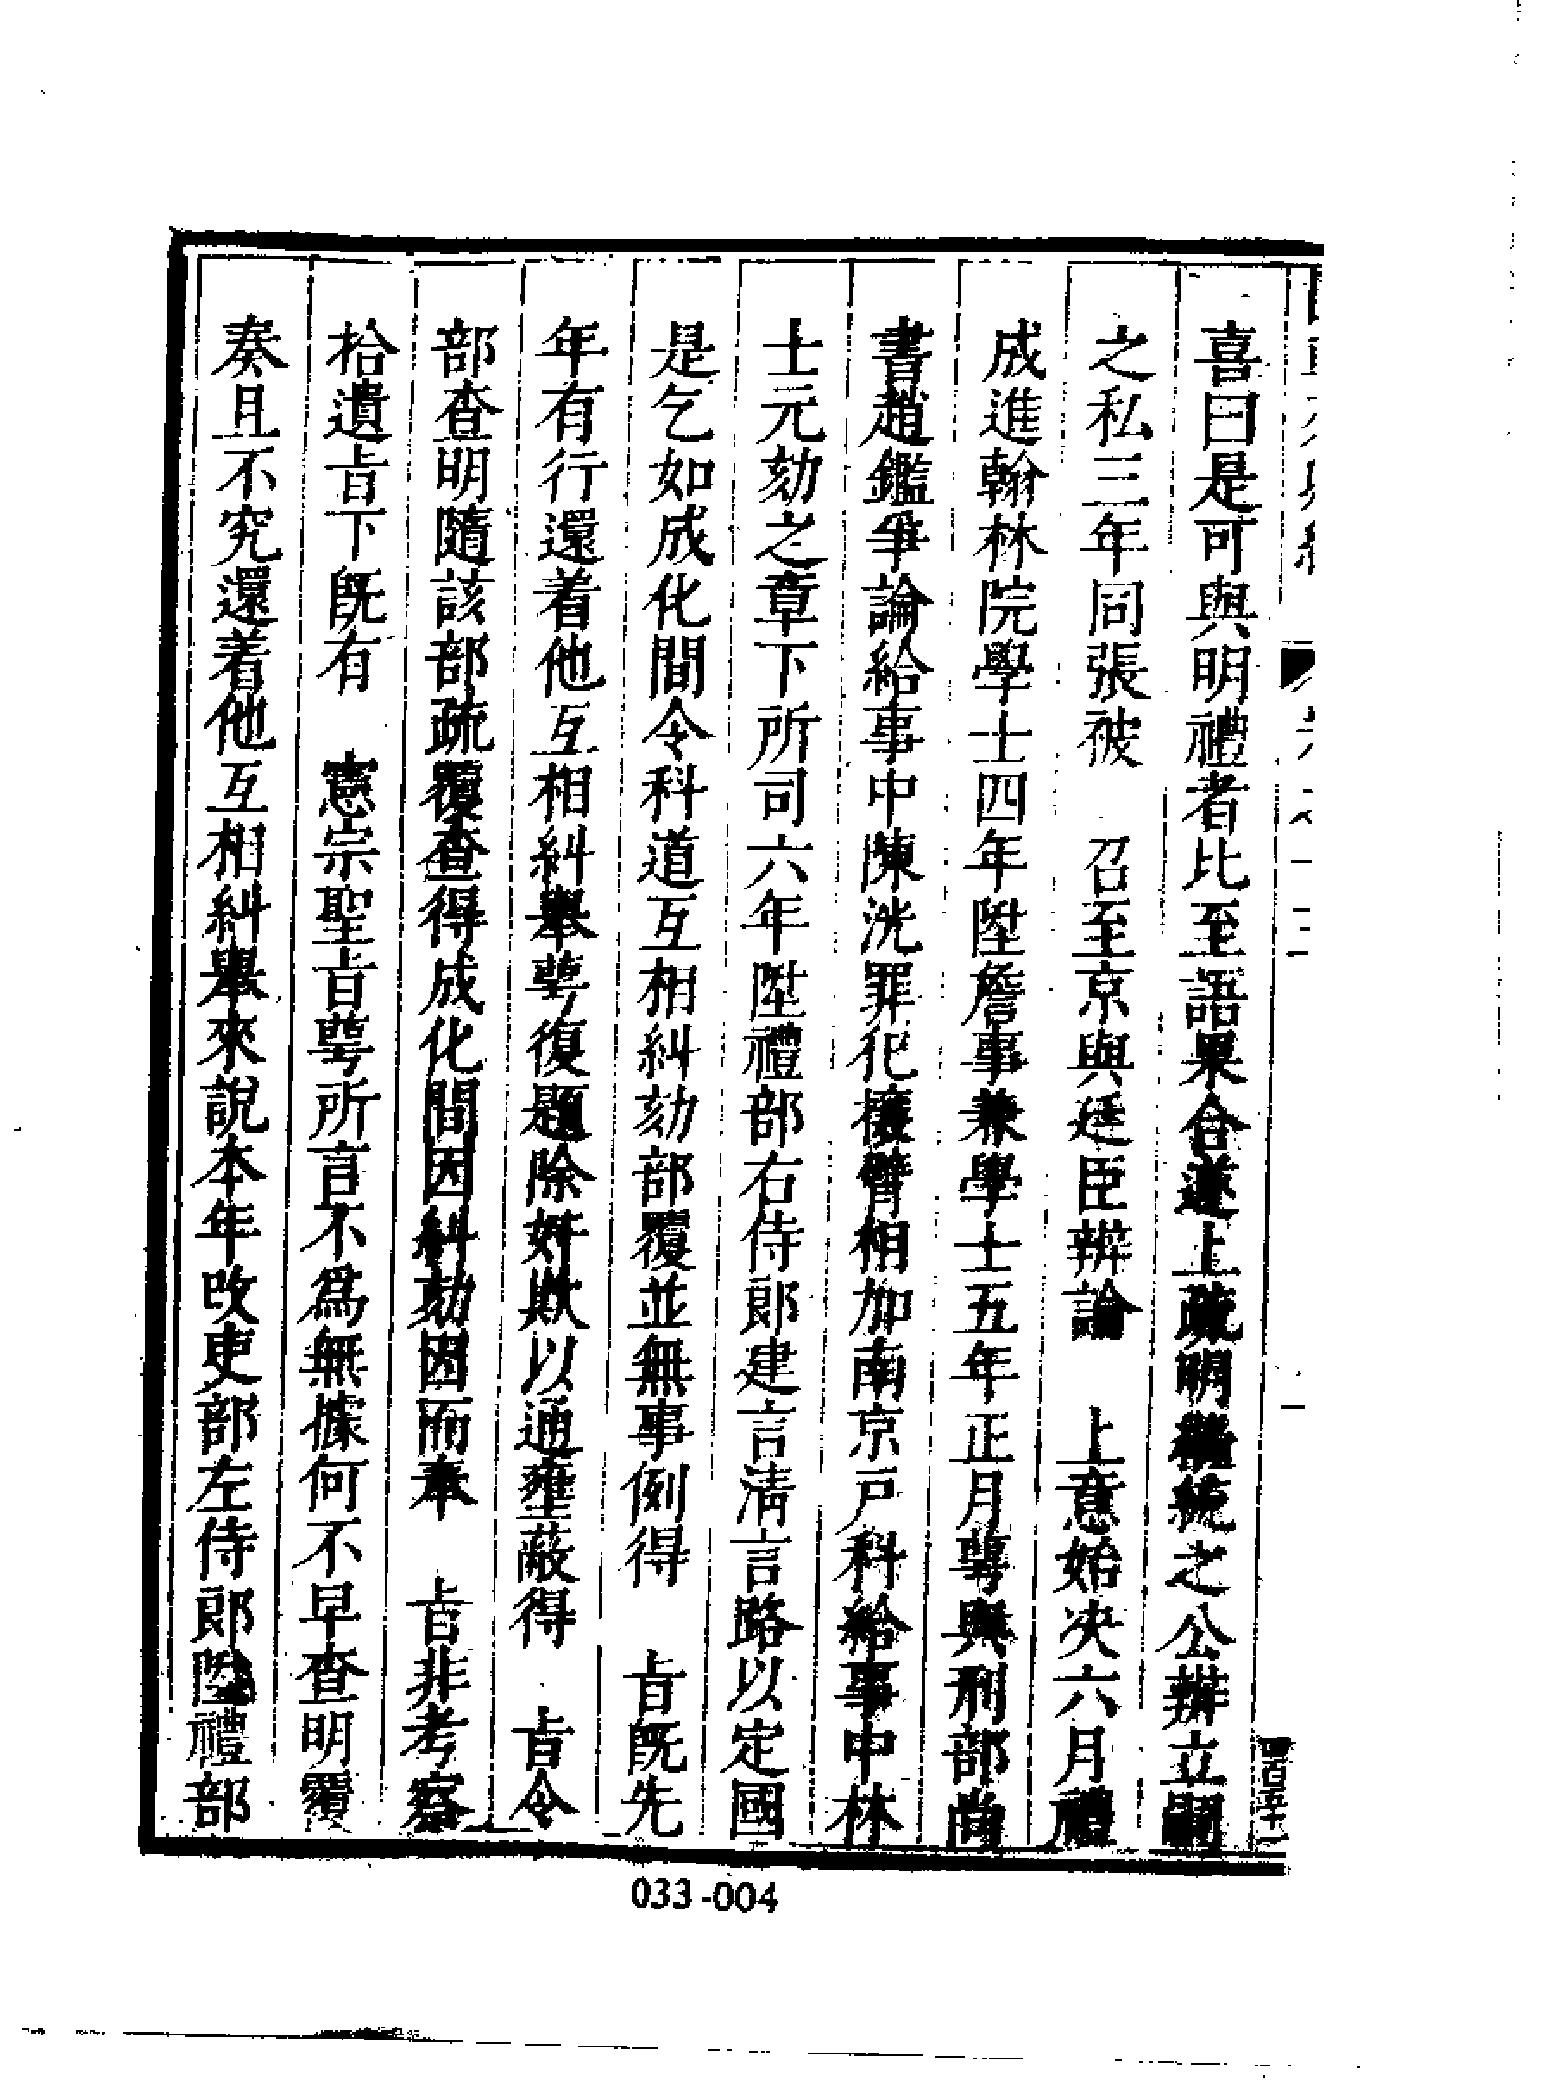 喜曰是可與明禮者比至語果合遂上疏明繼統之公辨立嗣
之私三年同張被　召至京與廷臣辨論　上意始決六月禮
成進翰林院學士四年陞詹事兼學士五年正月蕚與刑部尚
書趙鑑爭論給事中陳洸罪犯攘臂相加南京戶科給事中林
士元劾之章下所司六年陞禮部右侍郎建言清言路以定國
是乞如成化間令科道互相糾劾部覆並無事例得　旨既先
年有行還着他互相糾舉蕚復題除奸欺以通壅蔽得　旨令
部查明隨該部疏覆查得成化間因糾劾因而奉　旨非考察
拾遺旨下既有　憲宗聖旨蕚所言不為無據何不早查明覆
奏且不究還着他互相糾舉來說本年改吏部左侍郎陞禮部
四百五十一
033-004